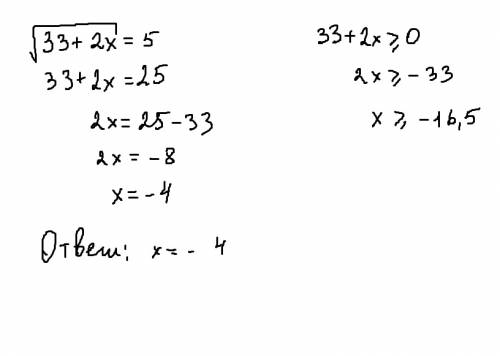 √33+2x = 5
33+2x = 25
2x = 25-33
2x = -8
x = -4
Ответ: x = - 4
33+2x ⩾ 0
2x ⩾ -33
x ⩾ -16,5